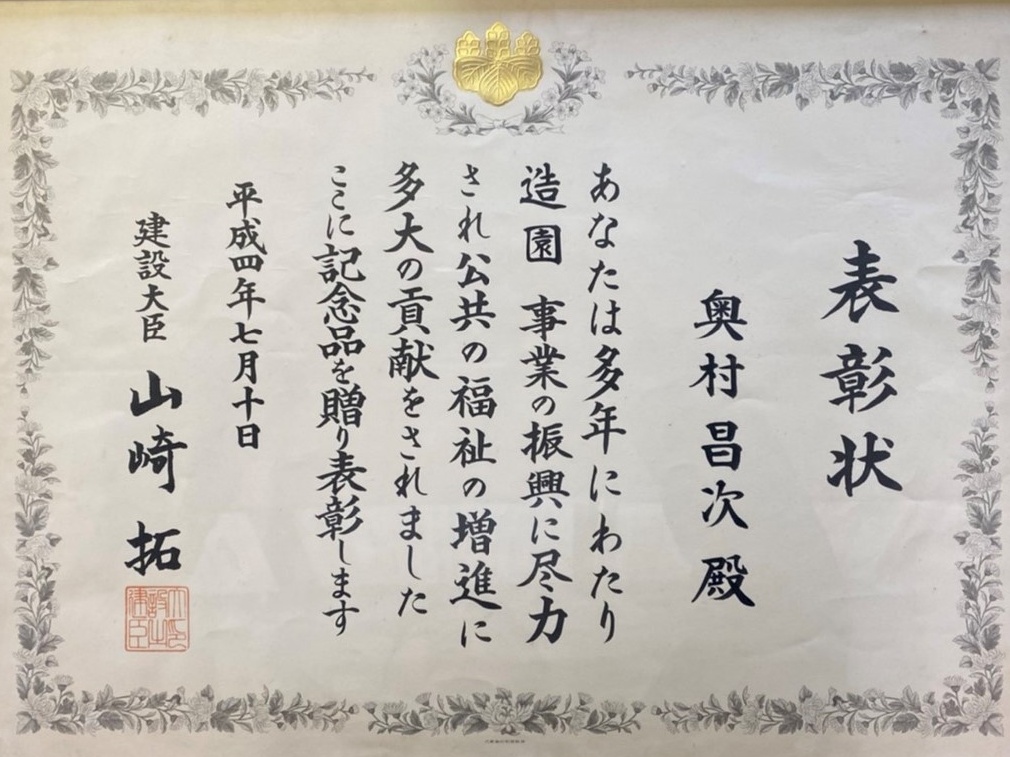 表彰状
奥村昌次殿
あなたは多年にわたり
造園 事業の振興に尽力
され公共の福祉の増進に
多大の貢献をされました
ここに記念品を贈り表彰します
平成四年七月十日
建設大臣 山崎 拓